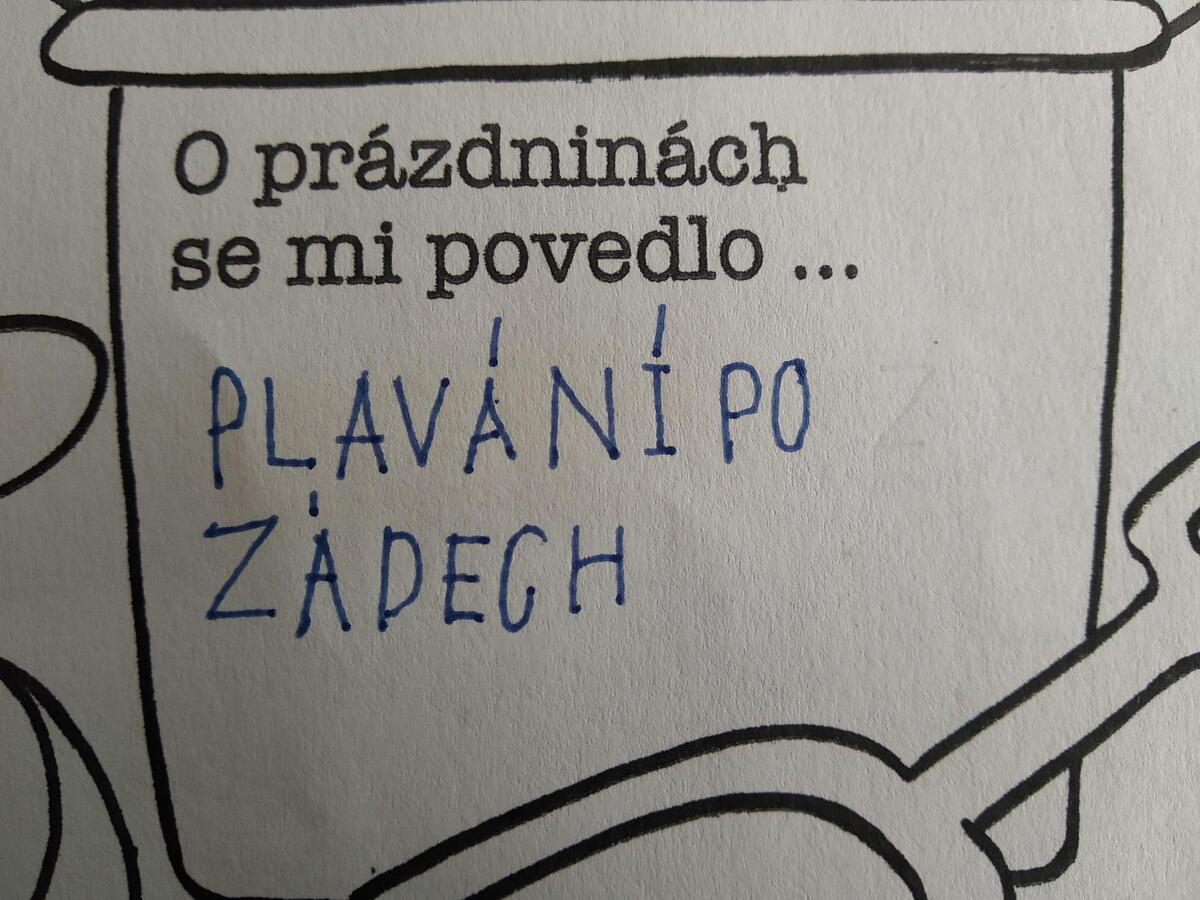 O prázdninách
se mi povedlo ...
PLAVÁNÍ PO
ZÁDECH